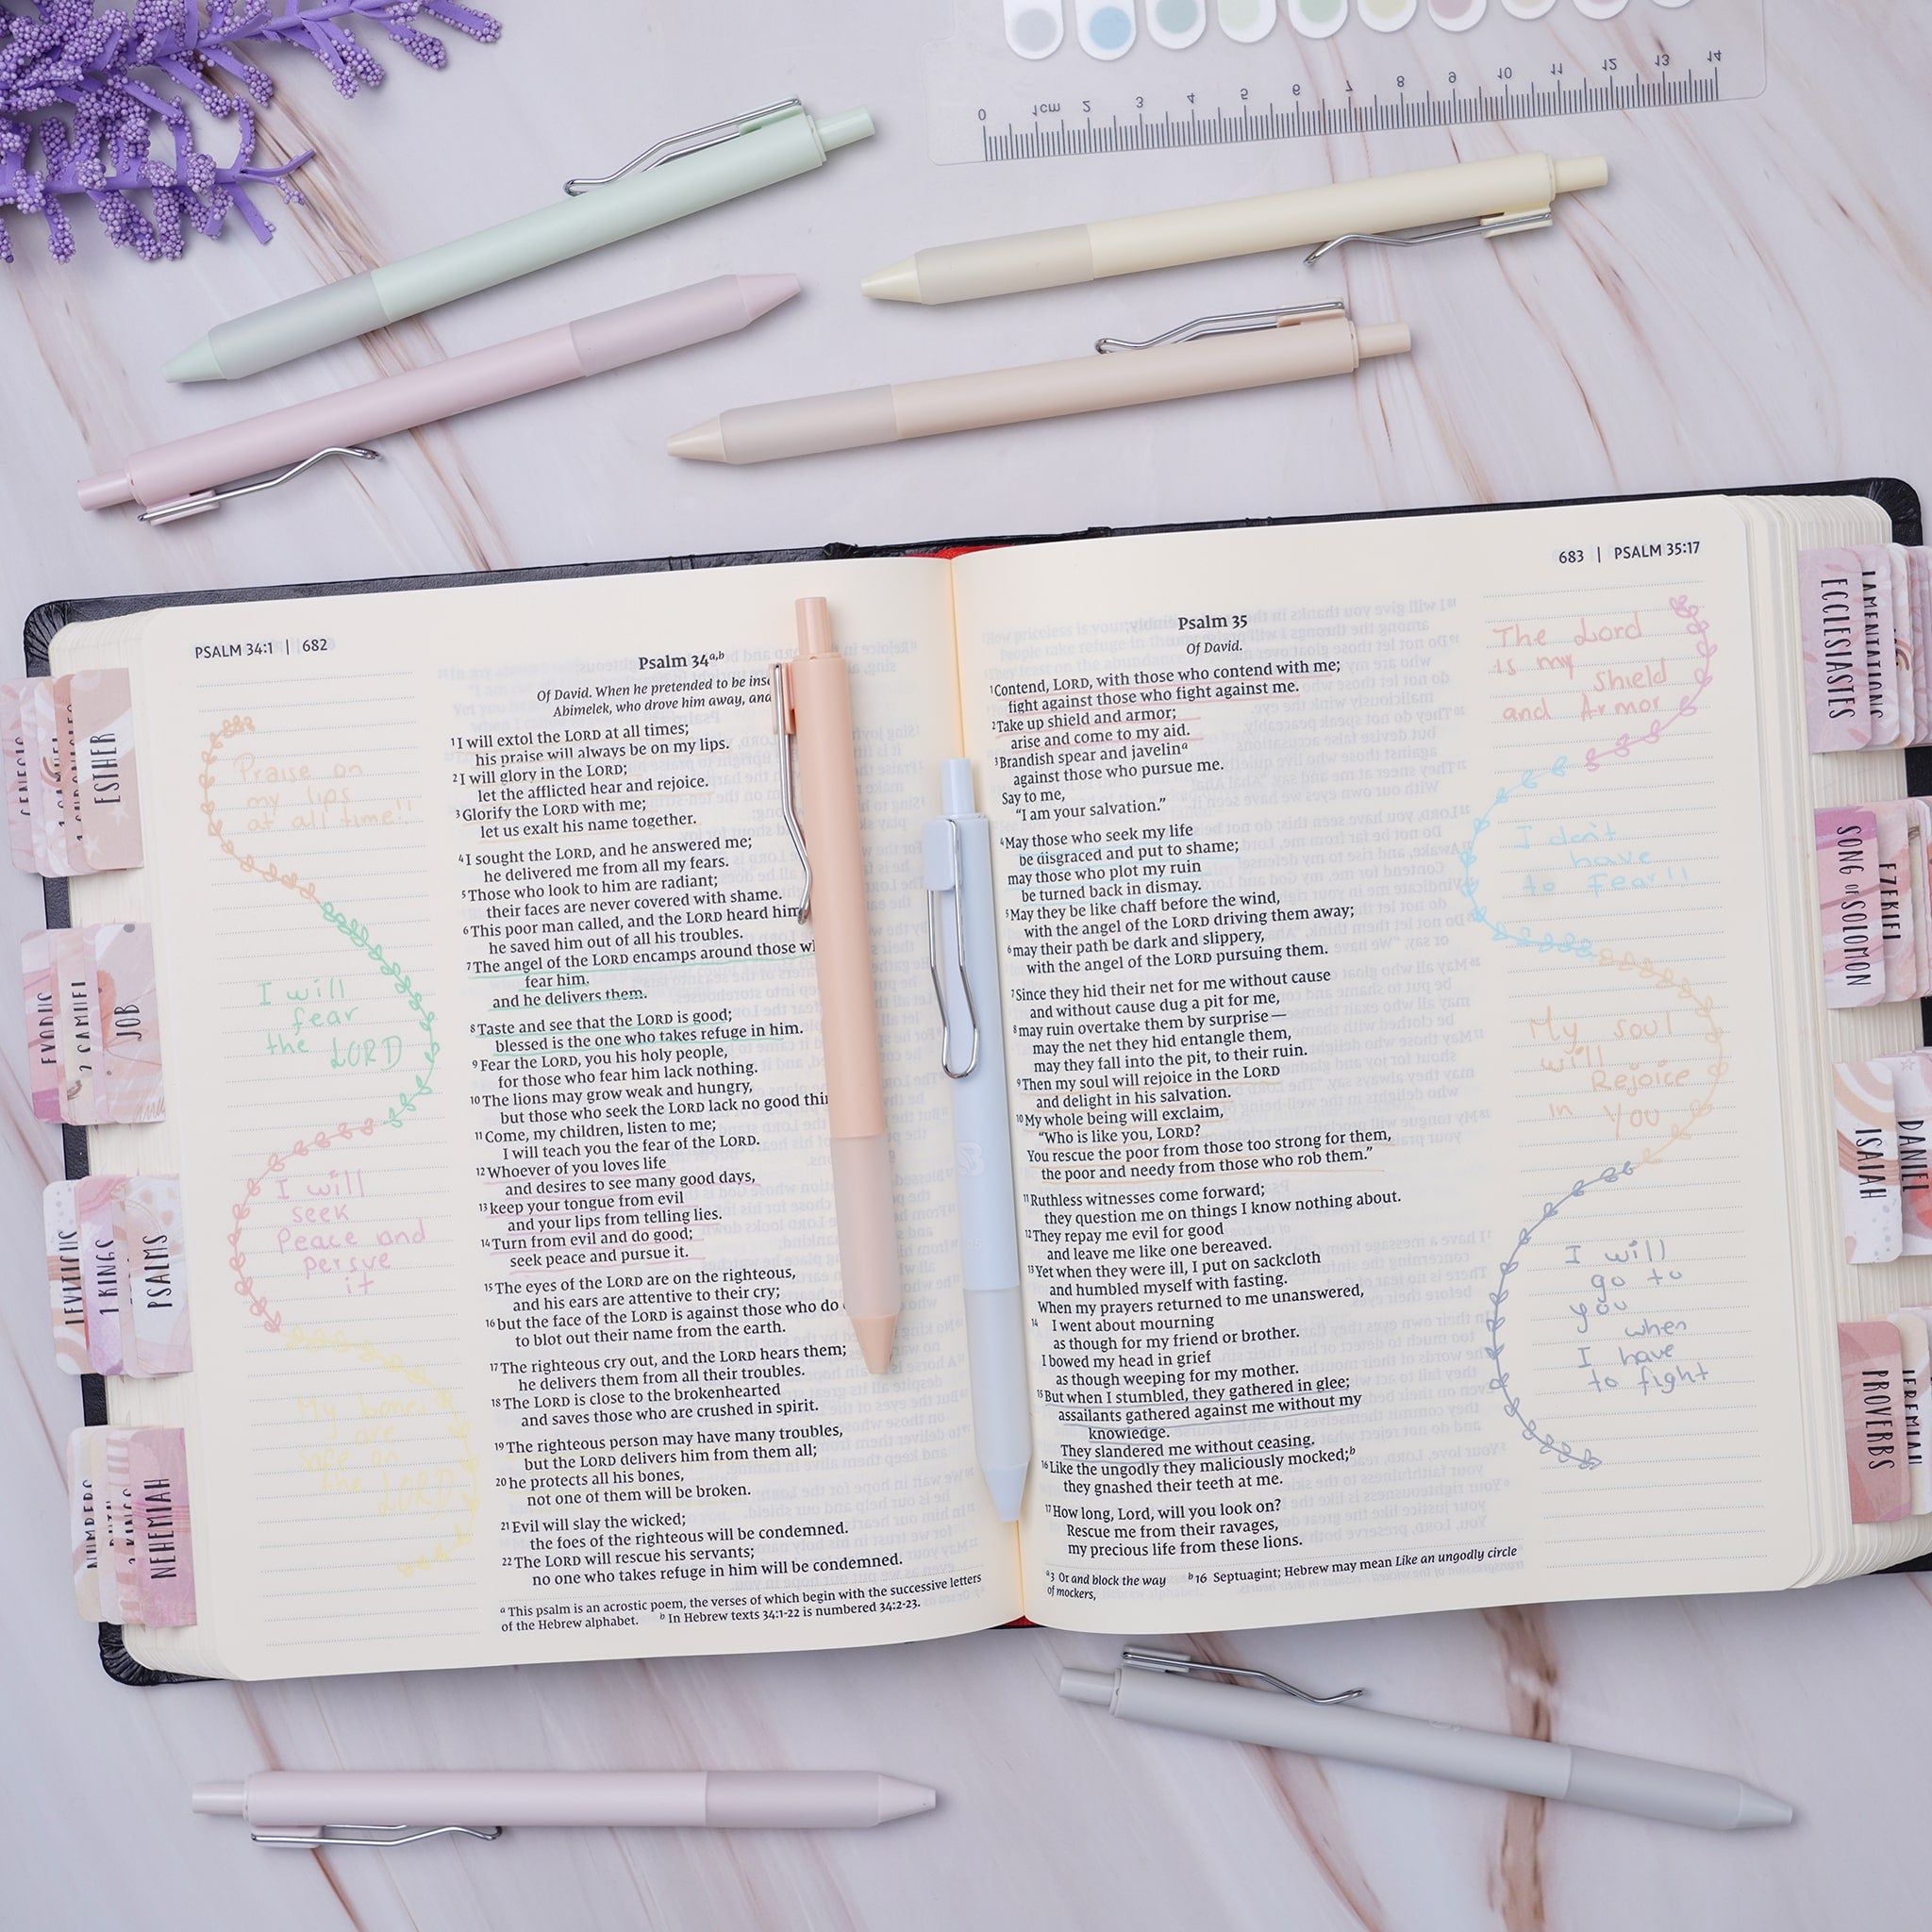 0 1cm 2 3 4 5 6 7 8 9 10 11 12 13 14
PSALM 34:1 | 682
Psalm 34a,b
Of David. When he pretended to be
Abimelek, who drove him away, and
1I will extol the LORD at all times;
his praise will always be on my lips.
2I will glory in the LORD;
let the afflicted hear and rejoice.
3Glorify the LORD with me;
let us exalt his name together.
4I sought the LORD, and he answered me;
he delivered me from all my fears.
5Those who look to him are radiant;
their faces are never covered with shame.
6This poor man called, and the LORD heard him
he saved him out of all his troubles.
7The angel of the LORD encamps around those
fear him,
and he delivers them.
8Taste and see that the LORD is good;
blessed is the one who takes refuge in him.
9Fear the LORD, you his holy people,
for those who fear him lack nothing.
10The lions may grow weak and hungry,
but those who seek the LORD lack no good
11Come, my children, listen to me;
I will teach you the fear of the LORD.
12Whoever of you loves life
and desires to see many good days,
13keep your tongue from evil
and your lips from telling lies.
14Turn from evil and do good;
seek peace and pursue it.
15The eyes of the LORD are on the righteous,
and his ears are attentive to their cry;
16but the face of the LORD is against those who do
to blot out their name from the earth.
17The righteous cry out, and the LORD hears them;
he delivers them from all their troubles.
18The LORD is close to the brokenhearted
and saves those who are crushed in spirit.
19The righteous person may have many troubles,
but the LORD delivers him from them all;
20he protects all his bones,
not one of them will be broken.
21Evil will slay the wicked;
the foes of the righteous will be condemned.
22The LORD will rescue his servants;
no one who takes refuge in him will be condemned.
a This psalm is an acrostic poem, the verses of which begin with the successive letters
of the Hebrew alphabet. b In Hebrew texts 34:1-22 is numbered 34:2-23.
Praise on
my lips
at all time!!
I will
fear
the LORD
I will
seek
Peace and
persve
it
My bones
are
safe on
the LORD
683 | PSALM 35:17
Psalm 35
Of David.
1Contend, LORD, with those who contend with me;
fight against those who fight against me.
2Take up shield and armor;
arise and come to my aid.
3Brandish spear and javelina
against those who pursue me.
Say to me,
“I am your salvation.”
4May those who seek my life
be disgraced and put to shame;
may those who plot my ruin
be turned back in dismay.
5May they be like chaff before the wind,
with the angel of the LORD driving them away;
6may their path be dark and slippery,
with the angel of the LORD pursuing them.
7Since they hid their net for me without cause
and without cause dug a pit for me,
8may ruin overtake them by surprise—
may the net they hid entangle them,
may they fall into the pit, to their ruin.
9Then my soul will rejoice in the LORD
and delight in his salvation.
10My whole being will exclaim,
“Who is like you, LORD?
You rescue the poor from those too strong for them,
the poor and needy from those who rob them.”
11Ruthless witnesses come forward;
they question me on things I know nothing about.
12They repay me evil for good
and leave me like one bereaved.
13Yet when they were ill, I put on sackcloth
and humbled myself with fasting.
When my prayers returned to me unanswered,
14 I went about mourning
as though for my friend or brother.
I bowed my head in grief
as though weeping for my mother.
15But when I stumbled, they gathered in glee;
assailants gathered against me without my
knowledge.
They slandered me without ceasing.
16Like the ungodly they maliciously mocked;b
they gnashed their teeth at me.
17How long, Lord, will you look on?
Rescue me from their ravages,
my precious life from these lions.
a3 Or and block the way b16 Septuagint; Hebrew may mean Like an ungodly circle
of mockers,
The Lord
is my
shield
and Armor
I don't
have
to Fear!!
My soul
will
Rejoice
in You
I will
go to
you
when
I have
to fight
ESTHER
JOB
1 KINGS
PSALMS
NEHEMIAH
ECCLESIASTES
LAMENTATIONS
SONG of SOLOMON
EZEKIEL
ISAIAH
DANIEL
PROVERBS